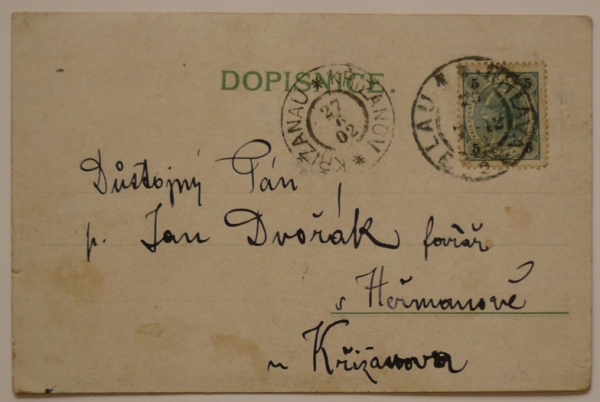 DOPISNICE.
KRIŽANAU * KRIŽANOV *
27
02
5 5
5 5
Důstojný Pán
p. Jan Dvořák farář
v Heřmanově
u Křižanova